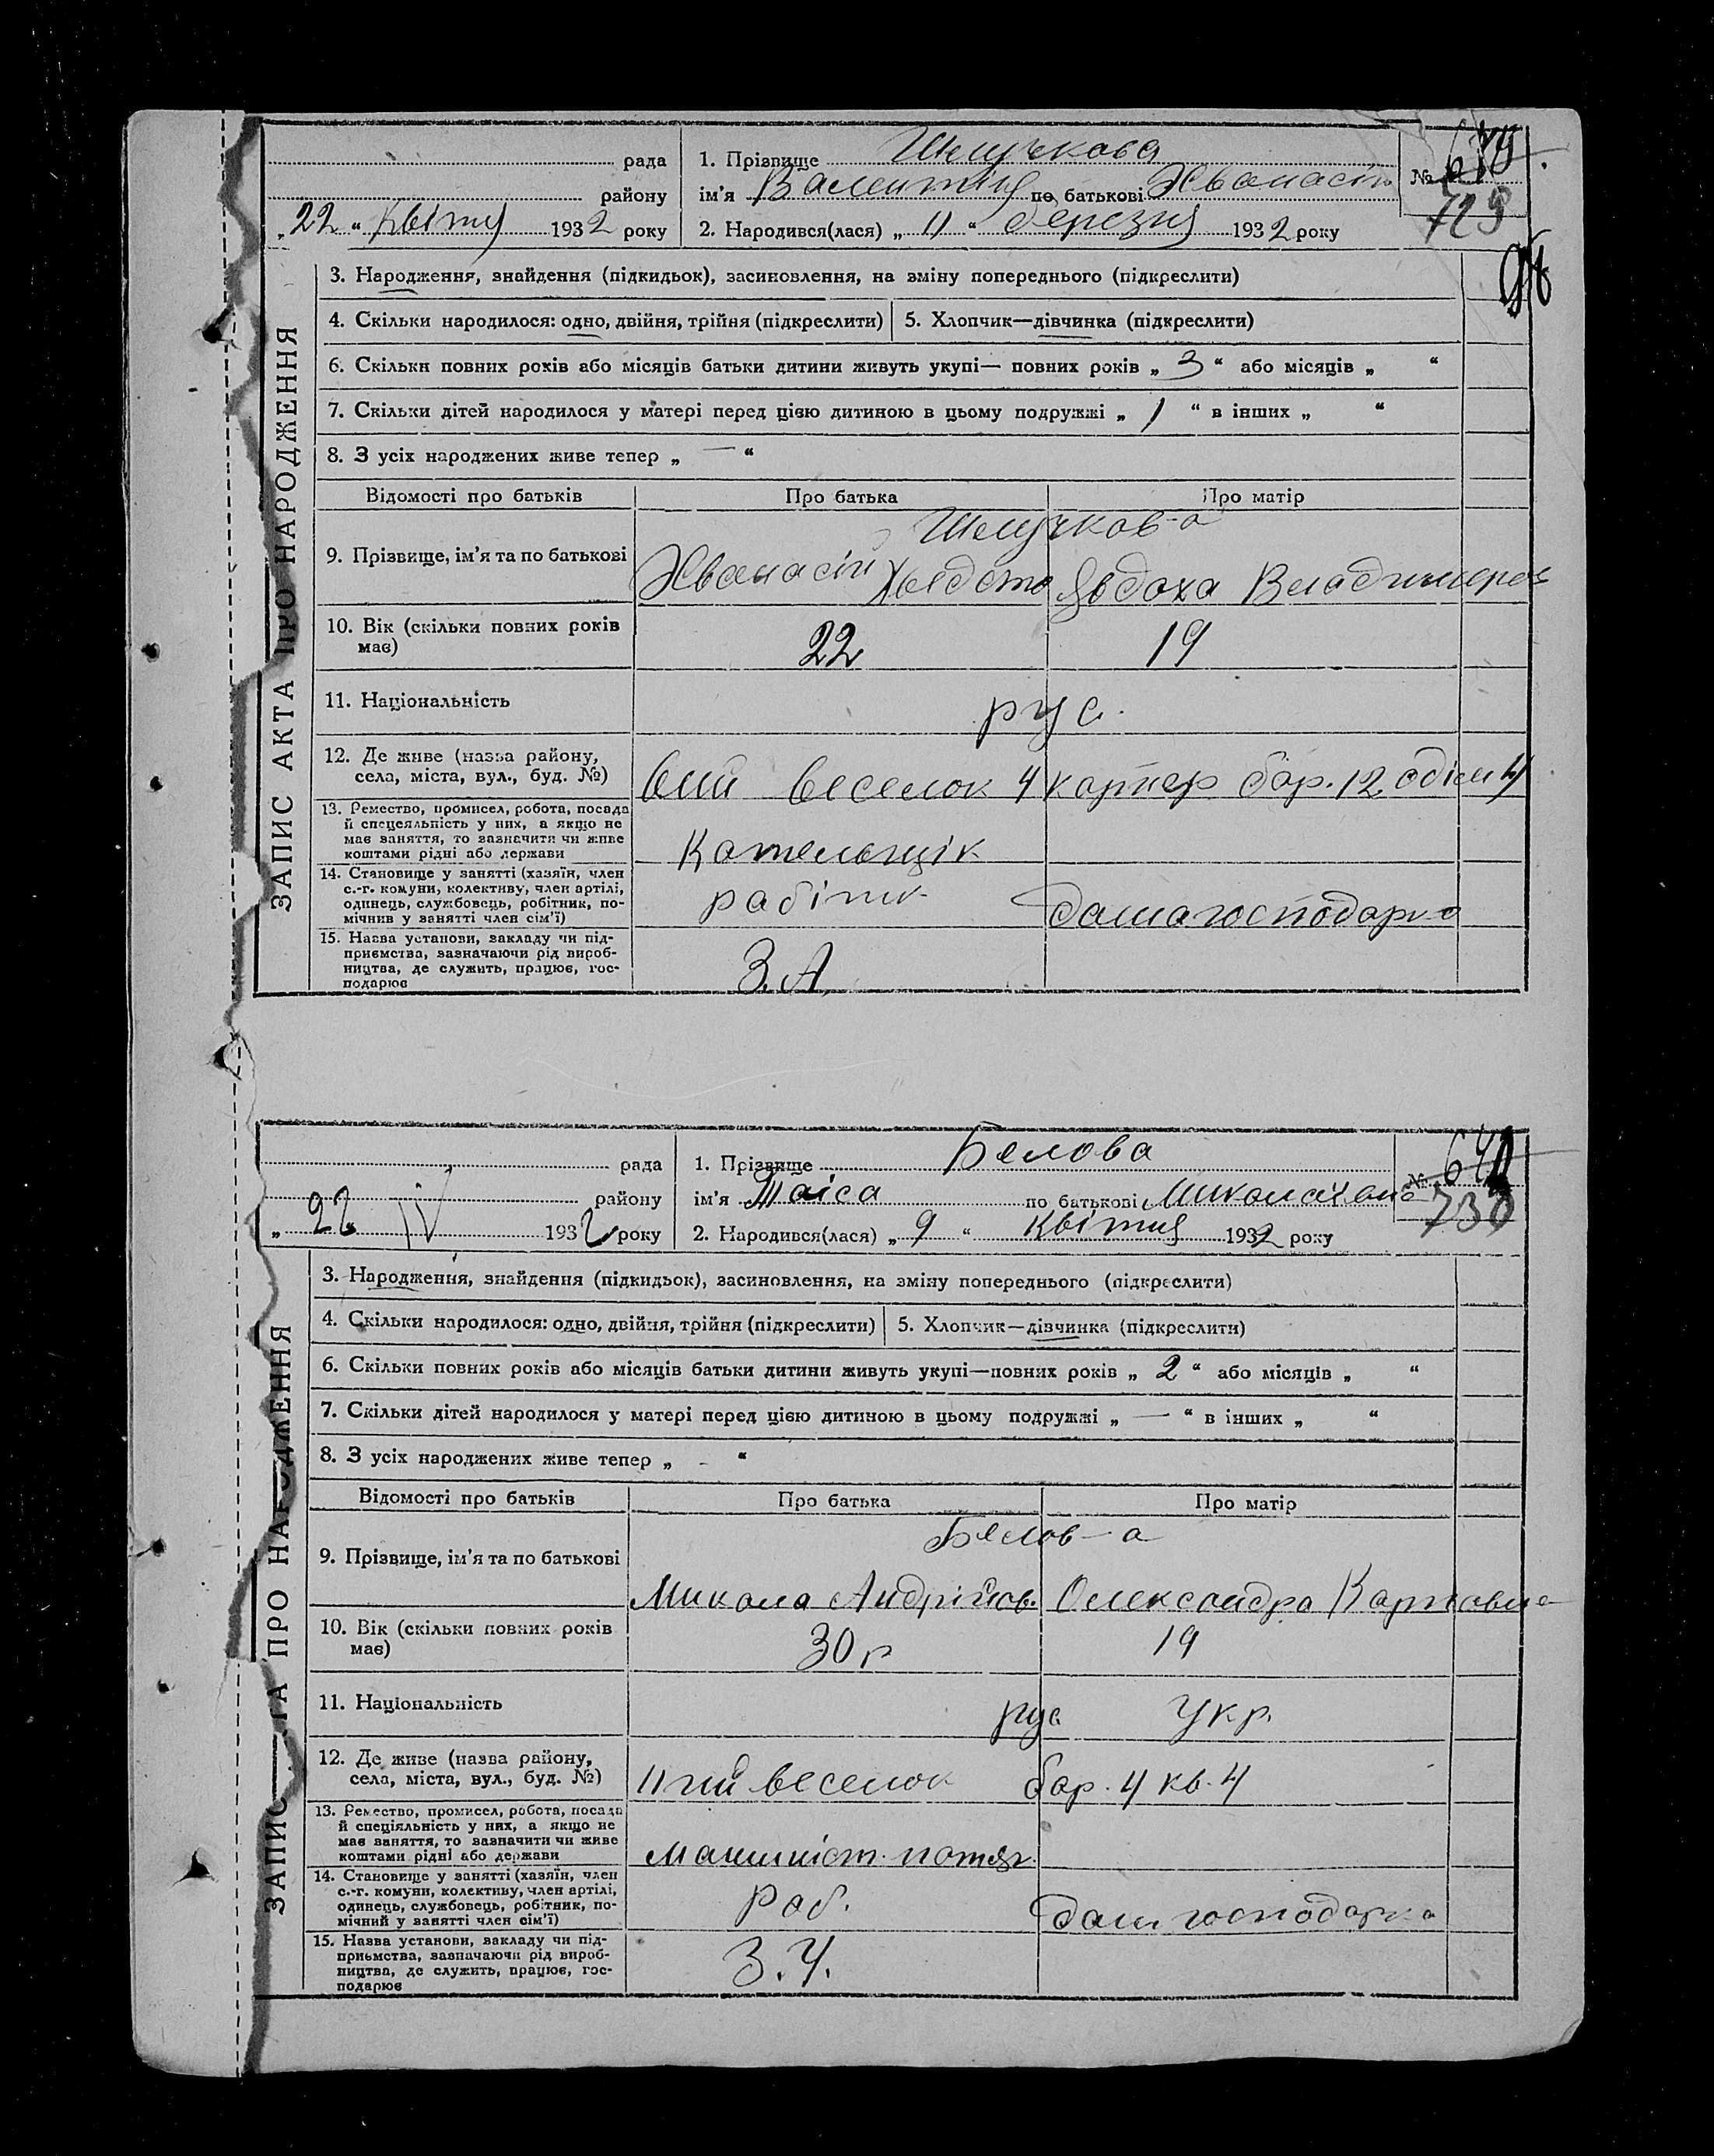 ЗАПИС АКТА ПРО НАРОДЖЕННЯ
рада
району
„22“ Квітня 1932 року
1. Прізвище
ім'я Валентина по батькові Хванасіїв
2. Народився(лася) „11“ березня 1932 року
№
729
3. Народження, знайдення (підкидьок), засиновлення, на зміну попереднього (підкреслити)
4. Скільки народилося: одно, двійня, трійня (підкреслити)
5. Хлопчик—дівчинка (підкреслити)
6. Скільки повних років або місяців батьки дитини живуть укупі— повних років „3“ або місяців „ “
7. Скільки дітей народилося у матері перед цією дитиною в цьому подружжі „1“ в інших „ “
8. З усіх народжених живе тепер „—“
Відомості про батьків
Про батька
Про матір
9. Прізвище, ім'я та по батькові
Хванасій
Явдоха Владимиров
10. Вік (скільки повних років має)
22
19
11. Національність
рус.
12. Де живе (назва району, села, міста, вул., буд. №)
веселок 4 бар. 12
13. Ремество, промисел, робота, посада
й спецеяльність у них, а якщо не
має заняття, то зазначити чи живе
коштами рідні або держави
Котельщік
14. Становище у занятті (хазяїн, член
с.-г. комуни, колективу, член артілі,
одинець, службовець, робітник, по-
мічнив у занятті член сім'ї)
рабітник
домагосподарка
15. Назва установи, закладу чи під-
приємства, зазначаючи рід вироб-
ництва, де служить, працює, гос-
подарює
З.А.
ЗАПИС ПРО НАРОДЖЕННЯ
рада
району
„22 IV 1932 року
1. Прізвище Белова
ім'я Таіса по батькові Миколаївна
2. Народився(лася) „9“ Квітня 1932 року
№
730
3. Народження, знайдення (підкидьок), засиновлення, на зміну попереднього (підкреслити)
4. Скільки народилося: одно, двійня, трійня (підкреслити)
5. Хлопчик—дівчинка (підкреслити)
6. Скільки повних років або місяців батьки дитини живуть укупі—повних років „2“ або місяців „ “
7. Скільки дітей народилося у матері перед цією дитиною в цьому подружжі „—“ в інших „ “
8. З усіх народжених живе тепер „-“
Відомості про батьків
Про батька
Про матір
9. Прізвище, ім'я та по батькові
Белов-а
Микола Андрійов.
Олександра Карповна
10. Вік (скільки повних років має)
30 р
19
11. Національність
рус
укр.
12. Де живе (назва району, села, міста, вул., буд. №)
11 тий веселок бар. 4 кв. 4
13. Ремество, промисел, робота, посада
й спеціяльність у них, а якщо не
має заняття, то зазначити чи живе
коштами рідні або держави
Машиніст. потяг.
14. Становище у занятті (хазяїн, член
с.-г. комуни, колективу, член артілі,
одинець, службовець, робітник, по-
мічний у занятті член сім'ї)
Роб.
дом господарка
15. Назва установи, закладу чи під-
приємства, зазначаючи рід вироб-
ництва, де служить, працює, гос-
подарює
З.У.